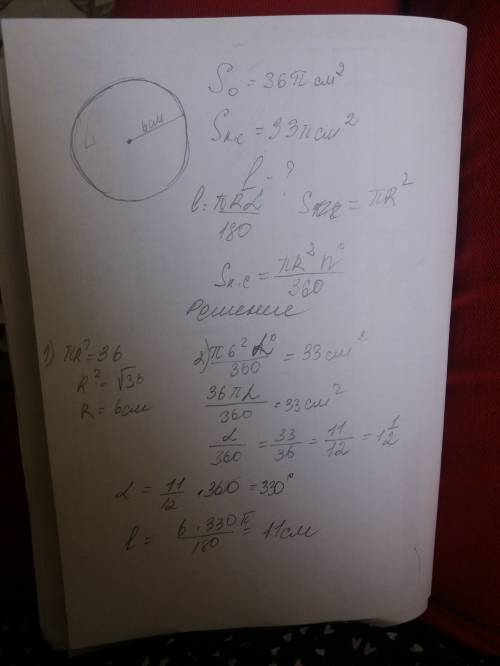 6см
S₀ = 36π см²
Sк.с = 33π см²
l - ?
l = πRα/180 ; S = πR²
Sк.с = πR² n°/360
Решение
1) πR² = 36
R² = √36
R = 6см
2) π6² α°/360 = 33 см²
36πα/360 = 33 см²
α/360 = 33/36 = 11/12 = 1 1/12
α = 11/12 · 360 = 330°
l = 6 · 330π/180 = 11см